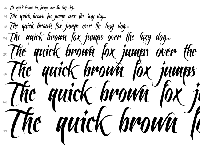 The quick brown fox jumps over the lazy dog.
The quick brown fox jumps over the lazy dog.
The quick brown fox jumps over the lazy dog.
The quick brown fox jumps over the lazy dog.
The quick brown fox jumps over the
The quick brown fox jumps
The quick brown fox
The quick brown fox